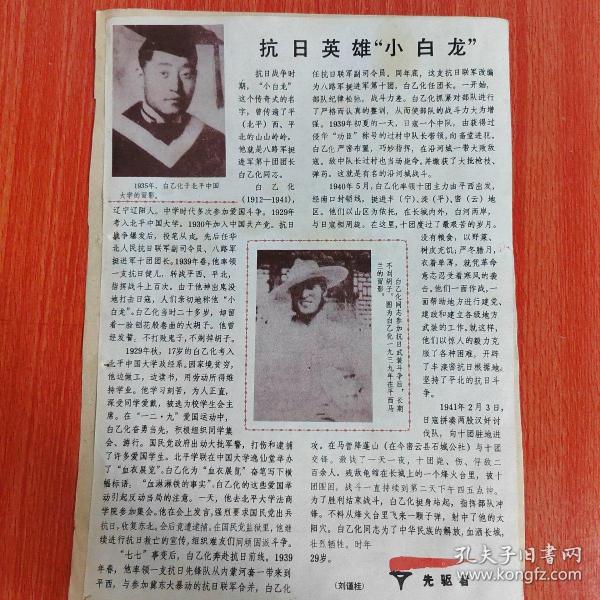 抗日英雄“小白龙”
1935年，白乙化于北平中国
大学的留影。
抗日战争时
期，“小白龙”
这个传奇式的名
字，曾传遍了平
（北平）西、平
北的山山岭岭。
他就是八路军挺
进军第十团团长
白乙化同志。
白乙化
（1912—1941），
辽宁辽阳人。中学时代多次参加爱国斗争。1929年
考入北平中国大学。1930年加入中国共产党。抗日
战争爆发后，投笔从戎，先后任华
北人民抗日联军副司令员、八路军
挺进军十团团长。1939年春，他率领
一支抗日健儿，转战平西、平北，
指挥战斗上百次。由于他神出鬼没
地打击日寇，人们亲切地称他“小
白龙”。白乙化当时二十多岁，却留
着一脸稠花般卷曲的大胡子。他曾
经发誓，不打败鬼子，不剃掉胡子。
1929年秋，17岁的白乙化考入
北平中国大学政经系。因家境贫穷，
他边做工，边读书，用劳动所得维
持学业。他学习刻苦，为人正直，
深受同学爱戴，被选为校学生会主
席。在“一二·九”爱国运动中，
白乙化奋勇当先，积极组织同学集
会、游行。国民党政府出动大批军警，打伤和逮捕
了许多爱国学生。北平学联在中国大学逸仙堂举办
了“血衣展览”。白乙化为“血衣展览”奋笔写下横
幅标语：“血淋淋铁的事实”。白乙化的这些爱国举
动引起反动当局的注意。一天，他去北平大学法商
学院参加集会。他在会上发言，强烈要求国民党出兵
抗日，收复东北。会后竟遭逮捕。在国民党监狱里，他继
续进行抗日救亡的宣传，组织难友们同顽固派斗争。
“七七”事变后，白乙化奔赴抗日前线。1939
年春，他率领一支抗日先锋队从内蒙河套一带来到
平西，与参加冀东大暴动的抗日联军合并，白乙化
任抗日联军副司令员。同年底，这支抗日联军改编
为八路军挺进军第十团，白乙化任团长。一开始，
部队纪律松弛，战斗力差。白乙化抓紧对部队进行
了严格而认真的整训，从而使部队的战斗力大为增
强。1939年初夏的一天，日寇一个中队，由获得过
侵华“功臣”称号的过村中队长带领，向斋堂进犯。
白乙化严密布置，巧妙指挥，在沿河城一带大败敌
寇。敌中队长过村也当场毙命。并缴获了大批枪枝、
弹药。这就是有名的沿河城战斗。
1940年5月，白乙化率领十团主力由平西出发，
经南口封锁线，挺进丰（宁）、滦（平）、密（云）地
区。他们以山区为依托，在长城内外，白河两岸，
与日寇相周旋。在这里，十团度过了最艰苦的岁月。
没有粮食，以野菜、
树皮充饥；严冬腊月，
衣着单薄，就凭革命
意志忍受着寒风的袭
击。他们一面作战，一
面帮助地方进行建党、
建政和建立各级地方
武装的工作。就这样，
他们以惊人的毅力克
服了各种困难，开辟
了丰滦密抗日根据地，
坚持了平北的抗日斗
争。
白乙化同志参加抗日武装斗争后，长期
不刮胡子。图为白乙化一九三九年在平西马
兰的留影。
1941年2月3日，
日寇拼凑两股汉奸讨
伐队，向十团驻地进
攻。在马营降蓬山（在今密云县石城公社）与十团
交锋。激战了一天一夜，十团毙、伤、俘敌二
百余人。残敌龟缩在长城上的一个烽火台里，被十
团围困，战斗一直持续到第二天下午四五点钟。
为了胜利结束战斗，白乙化挺身站起，指挥部队冲
锋。不料从烽火台里飞来一颗子弹，射中了他的太
阳穴。白乙化同志为了中华民族的解放，血洒长城，
壮烈牺牲。时年
29岁。
（刘谨桂）
先驱者
孔夫子旧书网